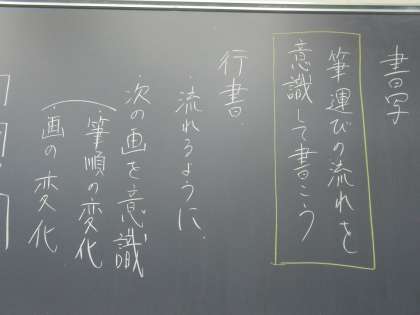 書写
筆運びの流れを
意識して書こう
行書
・流れるように
・次の画を意識
筆順の変化
画の変化